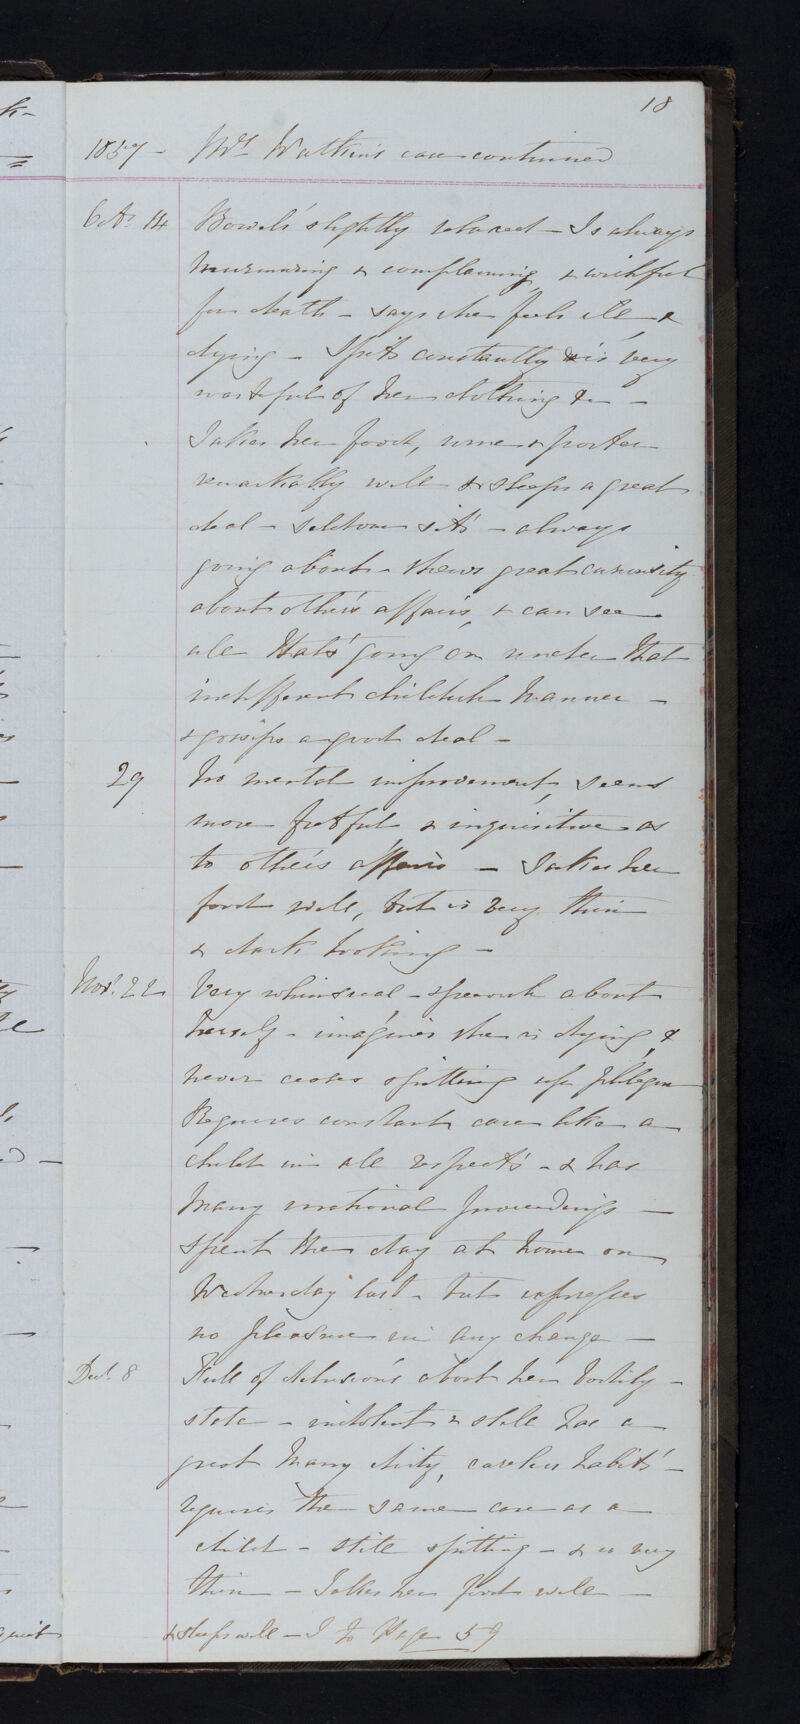 18
1857 - Mrs Watkins case continued
Octr 14 Bowels slightly relaxed - Is always
murmuring & complaining, & wishful
for death - says she feels ill &
dying - Spits constantly & is very
wasteful of her clothing &c -
Takes her food, wine & porter
remarkably well & sleeps a great
deal - seldom sits - always
going about - shews great curiosity
about others affairs, & can see
all that's going on under that
indifferent childish manner -
& gossips a good deal -
29 No mental improvement, seems
more fretful & inquisitive as
to others affairs - Takes her
food well, but is very thin
& dark looking -
Novr 22 Very whimsical - about
herself - imagines she is dying, &
never ceases spitting up phlegm
Requires constant care like a
child in all respects - & has
many irrational proceedings -
spent the day at home on
Wednesday last - but expresses
no pleasure in any change -
Decr 8 Full of delusions about her bodily -
state - indolent & still has a
great many dirty, careless habits -
requires the same care as a
child - still spitting - & is very
thin - Takes her food well -
& sleeps well - to Page 57